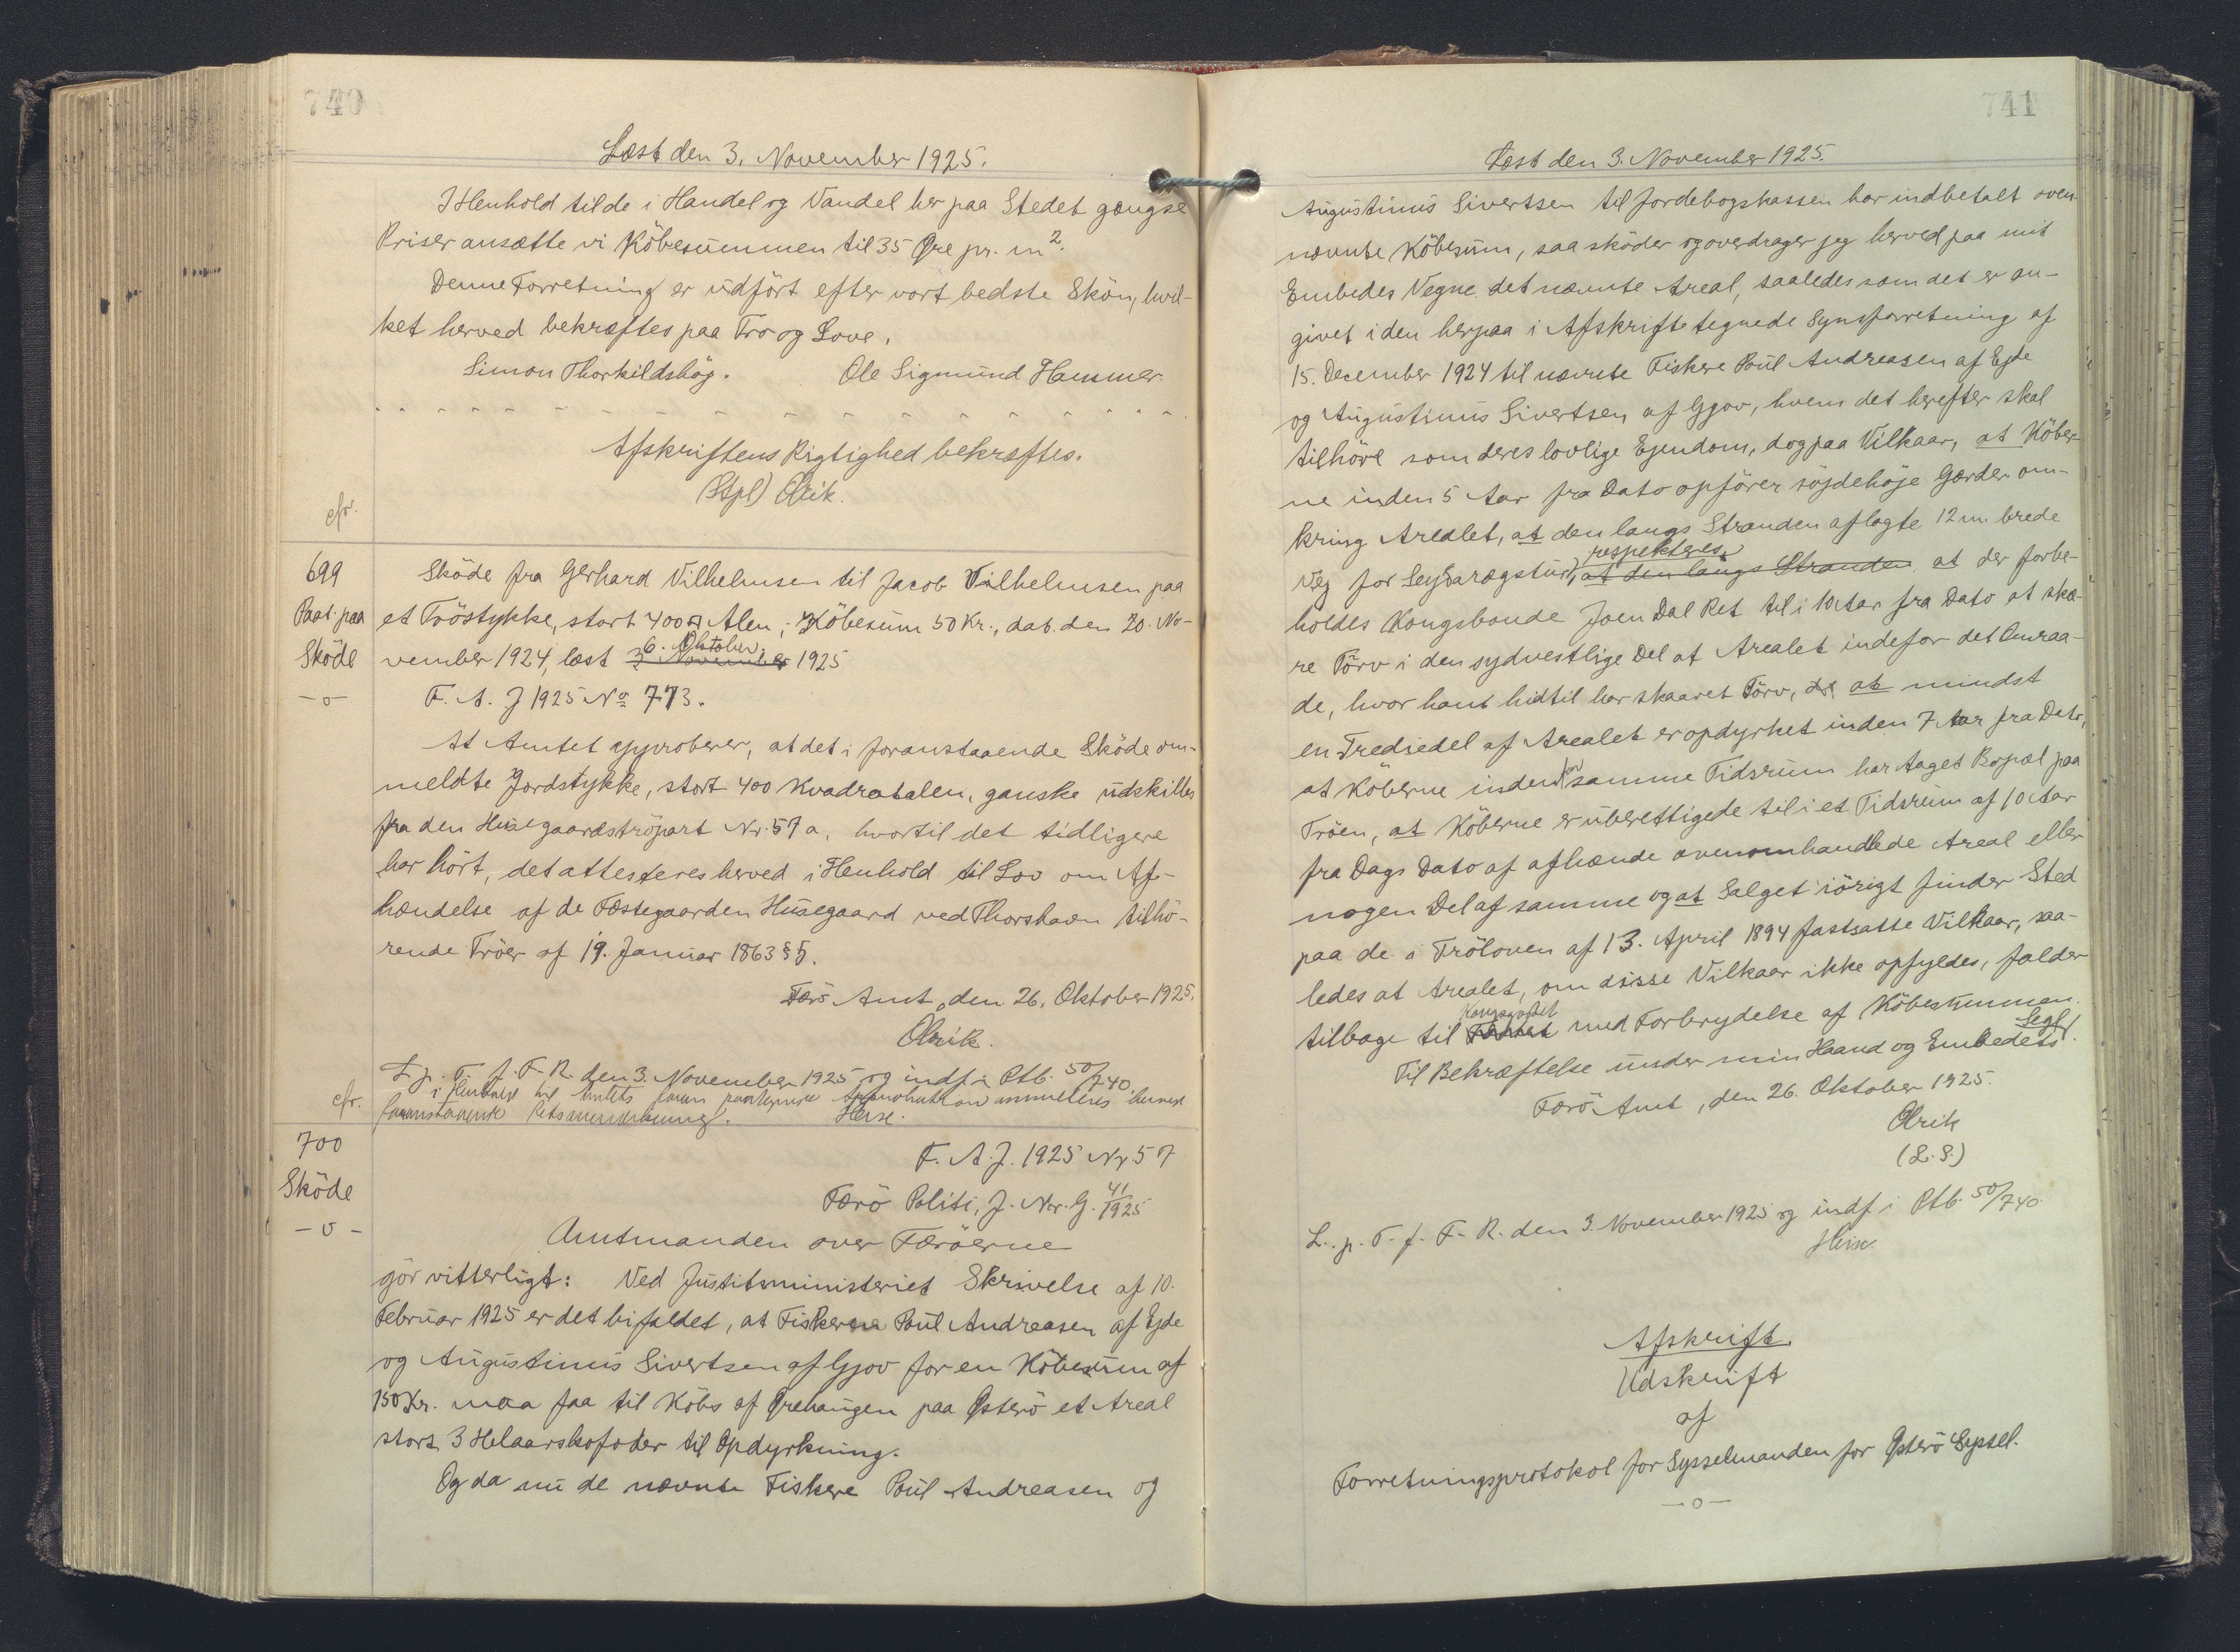 740
Læst den 3. November 1925.
I Henhold til de i Handel og Vandel her paa Stedet gængse
Priser ansætte vi Köbesummen til 35 Øre pr. m².
Denne Forretning er udfört efter vort bedste Skön, hvil-
ket herved bekræftes paa Tro og Love.
Simon Thorkildshöj. Ole Sigmund Hammer
Afskriftens Rigtighed bekræftes.
(Stpl) Olrik.
cfr.
699
Paat. paa
Sköde
-o-
Sköde fra Gerhard Vilhelmsen til Jacob Vilhelmsen paa
et Tröstykke, stort 400 □ Alen; Köbesum 50 Kr., dat. den 20. No-
vember 1924, læst 3 November 6. Oktober 1925
F. A. J 1925 No 773.
At Amtet approberer, at det i foranstaaende Sköde om-
meldte Jordstykke, stort 400 Kvadratalen, ganske udskilles
fra den Husegaardströpart Nr. 57 a, hvortil det tidligere
har hört, det attesteres herved i Henhold til Lov om Af-
hændelse af de Fæstegaarden Husegaard ved Thorshavn tilhö-
rende Tröer af 19. Januar 1863 § 5.
Færö Amt, den 26. Oktober 1925.
Olrik.
L. p. T. f. F. R. den 3. November 1925 og indf. i Ptb. 50/740.
i Henhold til Amtets foran paategnede Approbation annulleres herved
foranstaaende Retsanmærkning. Heise.
cfr.
700
Sköde
-o-
F. A. J. 1925 Nr 57
Færö Politi, J. Nr. G. 41/1925
Amtmanden over Færöerne
gör vitterligt: Ved Justitsministeriet Skrivelse af 10.
Februar 1925 er det bifaldet, at Fiskerne Poul Andreasen af Ejde
og Augustinus Sivertsen af Gjov for en Köbesum af
150 Kr. maa faa til Köbs af Ørehaugen paa Østerö et Areal
stort 3 Helaarskofoder til Opdyrkning.
Og da nu de nævnte Fiskere Poul Andreasen og
741
Læst den 3. November 1925.
Augustinus Sivertsen til Jordebogskassen har indbetalt oven
nævnte Köbesum, saa sköder og overdrager jeg herved paa mit
Embedes Vegne det nævnte Areal, saaledes som det er an-
givet i den herpaa i Afskrift tegnede Synsforretning af
15. December 1924 til nævnte Fiskere Poul Andreasen af Ejde
og Augustinus Sivertsen af Gjov, hvem det herefter skal
tilhöre som deres lovlige Ejendom, dog paa Vilkaar, at Köber-
ne inden 5 Aar fra Dato opförer söjdehöje Gærder om-
kring Arealet, at den langs Stranden aflagte 12 m. brede
Vej for Seydarøgstur, respekteres, at den langs Stranden at der forbe-
holdes Kongsbonde Joen Dal Ret til i 10 Aar fra Dato at skæ-
re Törv i den sydvestlige Del af Arealet indefor det Omraa-
de, hvor hans hidtil har skaaret Törv, at mindst
en Trediedel af Arealet er opdyrket inden 7 Aar fra Dato,
at Köberne inden for samme Tidsrum har taget Bopæl paa
Tröen, at Köberne er uberettigede til i et Tidsrum af 10 Aar
fra Dags Dato af afhænde ovenomhandlede Areal eller
nogen Del af samme og at Salget iörigt finder Sted
paa de i Tröloven af 13. April 1894 fastsatte Vilkaar, saa-
ledes at Arealet, om disse Vilkaar ikke opfyldes, falder
tilbage til Kongsgodset med Forbrydelse af Köbesummen.
Til Bekræftelse under min Haand og Embedets Segl.
Færö Amt, den 26. Oktober 1925.
Olrik
(L. S.)
L. p. T. f. F. R. den 3. November 1925 og indf. i Ptb. 50/740.
Heise.
Afskrift.
Udskrift
af
Forretningsprotokol for Sysselmanden for Østerö Syssel.
-o-